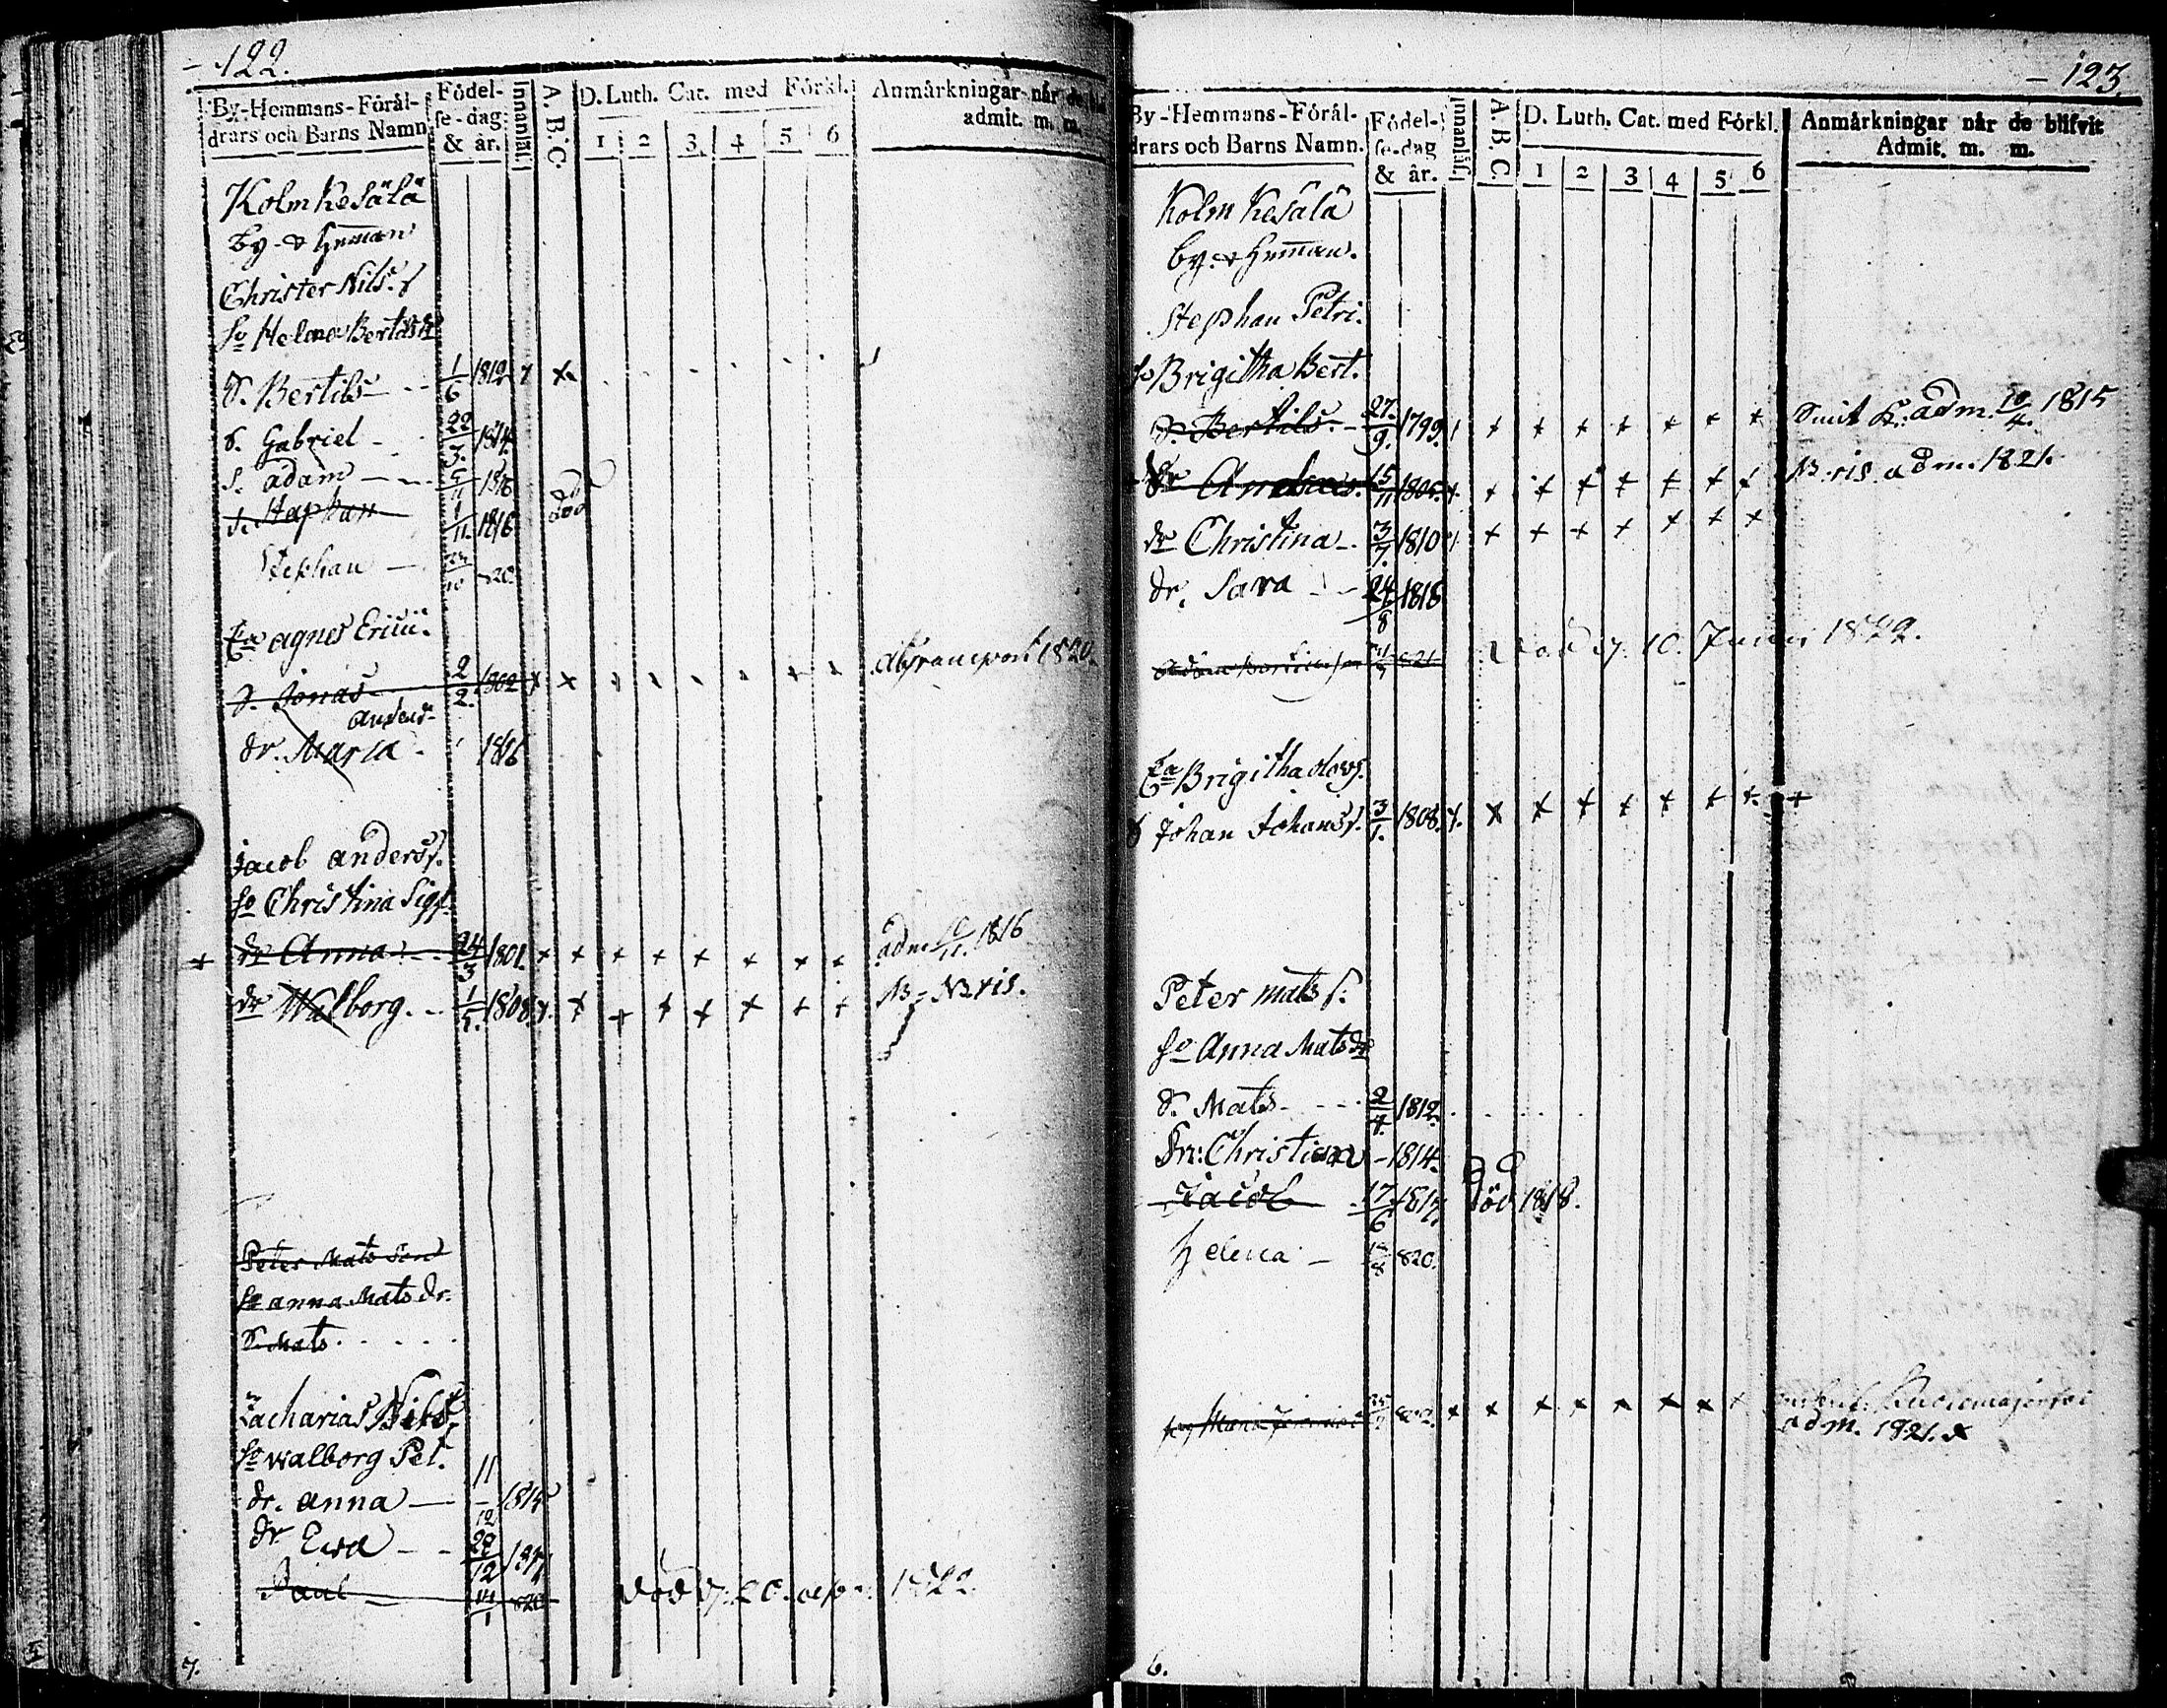 122.
By-Hemmans-Förål- Födel- Innanläs. A. B. C. D. Luth. Cat. med Förkl. Anmårkningar når de
drars och Barns Namn se-dag & år. 1 2 3 4 5 6 admit. m. m.
Kolmkesälä
by- & hemman
Christer Nils. s
ho Helena Bertilsdr
S. Bertils 1/6 1812
S. Gabriel 22/3. 1814.
S. adam 5/11 1816
S. Staphan 1/11. 1816 död
Stephan 20
Ea agnes Erici.
S. Jonas 2/2. 1802 x x 1820.
Anders
dr. Maria 1816
Jacob anderss.
ho Christina Sigf.
+ dr Anna 24/3 1801. x x x x x x x x adm 11. 1816
dr Walborg. 1/5. 1808. x. x x x x x x x
Peter Mats Son
ho anna Mats dr.
S. Mats
Zacharias Nils.
ho Walborg Pet.
dr. anna 11/12 1815
dr Ewa 28/12
Paul 14/1 820 död d. 20. 1822.
7.
123.
By-Hemmans-Förål- Födel- Innanläs. A. B. C. D. Luth. Cat. med Förkl. Anmårkningar når de blifvit
drars och Barns Namn. se-dag & år. 1 2 3 4 5 6 Admit. m. m.
Kolmkesälä
by. & hemman.
Stephan Petri.
ho Brigitha Bert.
S. Bertils. 27/9. 1799. x x x x x x x adm. 10/4. 1815
Andreas. 15/11 1805. x. x x x x x x x adm. 1821.
dr Christina 3/7. 1810 x x x x x x x
dr. Sara 24/8 1818
821 död d. 10. Junii 1822.
Ea Brigitha Olofs.
S Johan Johanss. 3/1. 1808. x. x x x x x x x +
Peter mats s.
ho Anna Mats dr
S. Mats 2/4. 1812.
Dr: Christina 1814.
Jacob 17/6 1817. död 1818.
Helena 8 820.
Maria 802. x x x x x x x x
adm. 1821. x
6.